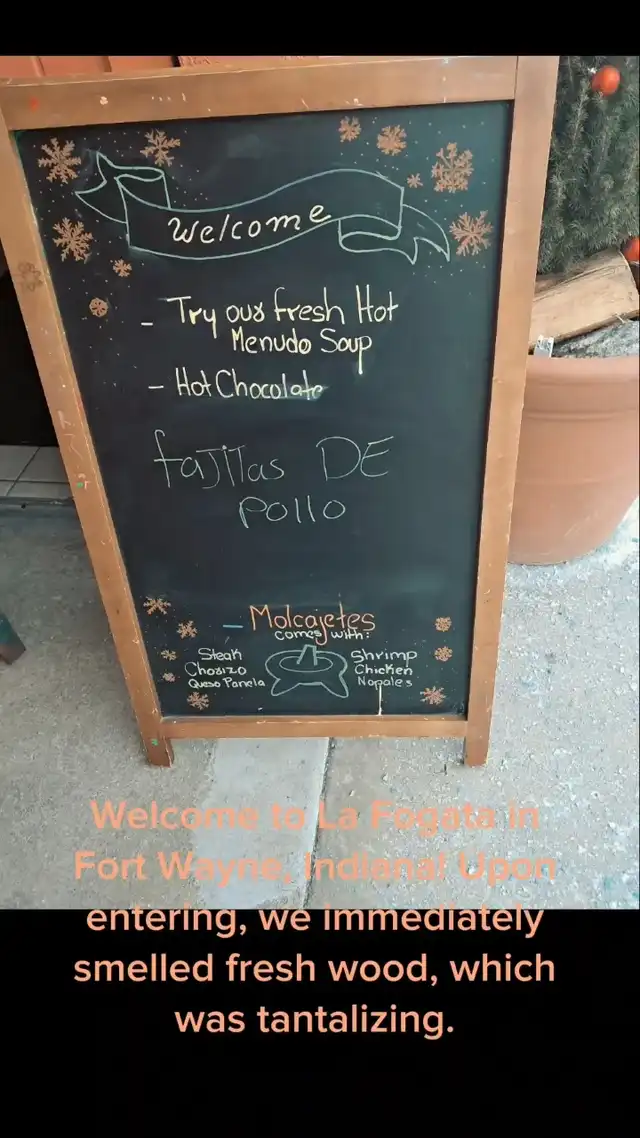 Welcome
- Try our fresh Hot
Menudo Soup
- Hot Chocolate
fajitas DE
pollo
- Molcajetes
comes with:
Steak
Chorizo
Queso Panela
Shrimp
Chicken
Nopales
Welcome to La Fogata in
Fort Wayne, Indiana! Upon
entering, we immediately
smelled fresh wood, which
was tantalizing.